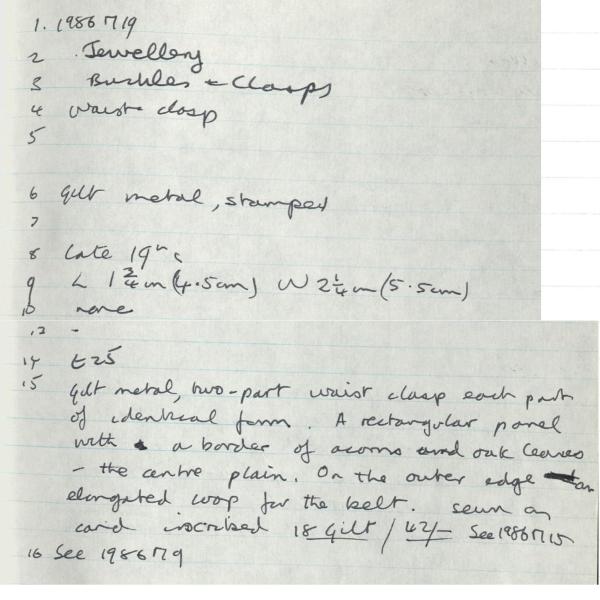 1. 1986 П 19
2 Jewellery
3 Buckles + Clasps
4 Waist clasp
5
6 Gilt metal, stamped
7
8 Late 19th c
9 L 1 3/4 in (4.5cm) W 2 1/4 in (5.5cm)
10 none
13 -
14 £25
15 Gilt metal, two-part waist clasp each part
of identical form. A rectangular panel
with a border of acorns and oak leaves
- the centre plain. On the outer edge an
elongated loop for the belt. Sewn on
card inscribed 18 Gilt / 42/- See 1986 П 15
16 See 1986 П 9